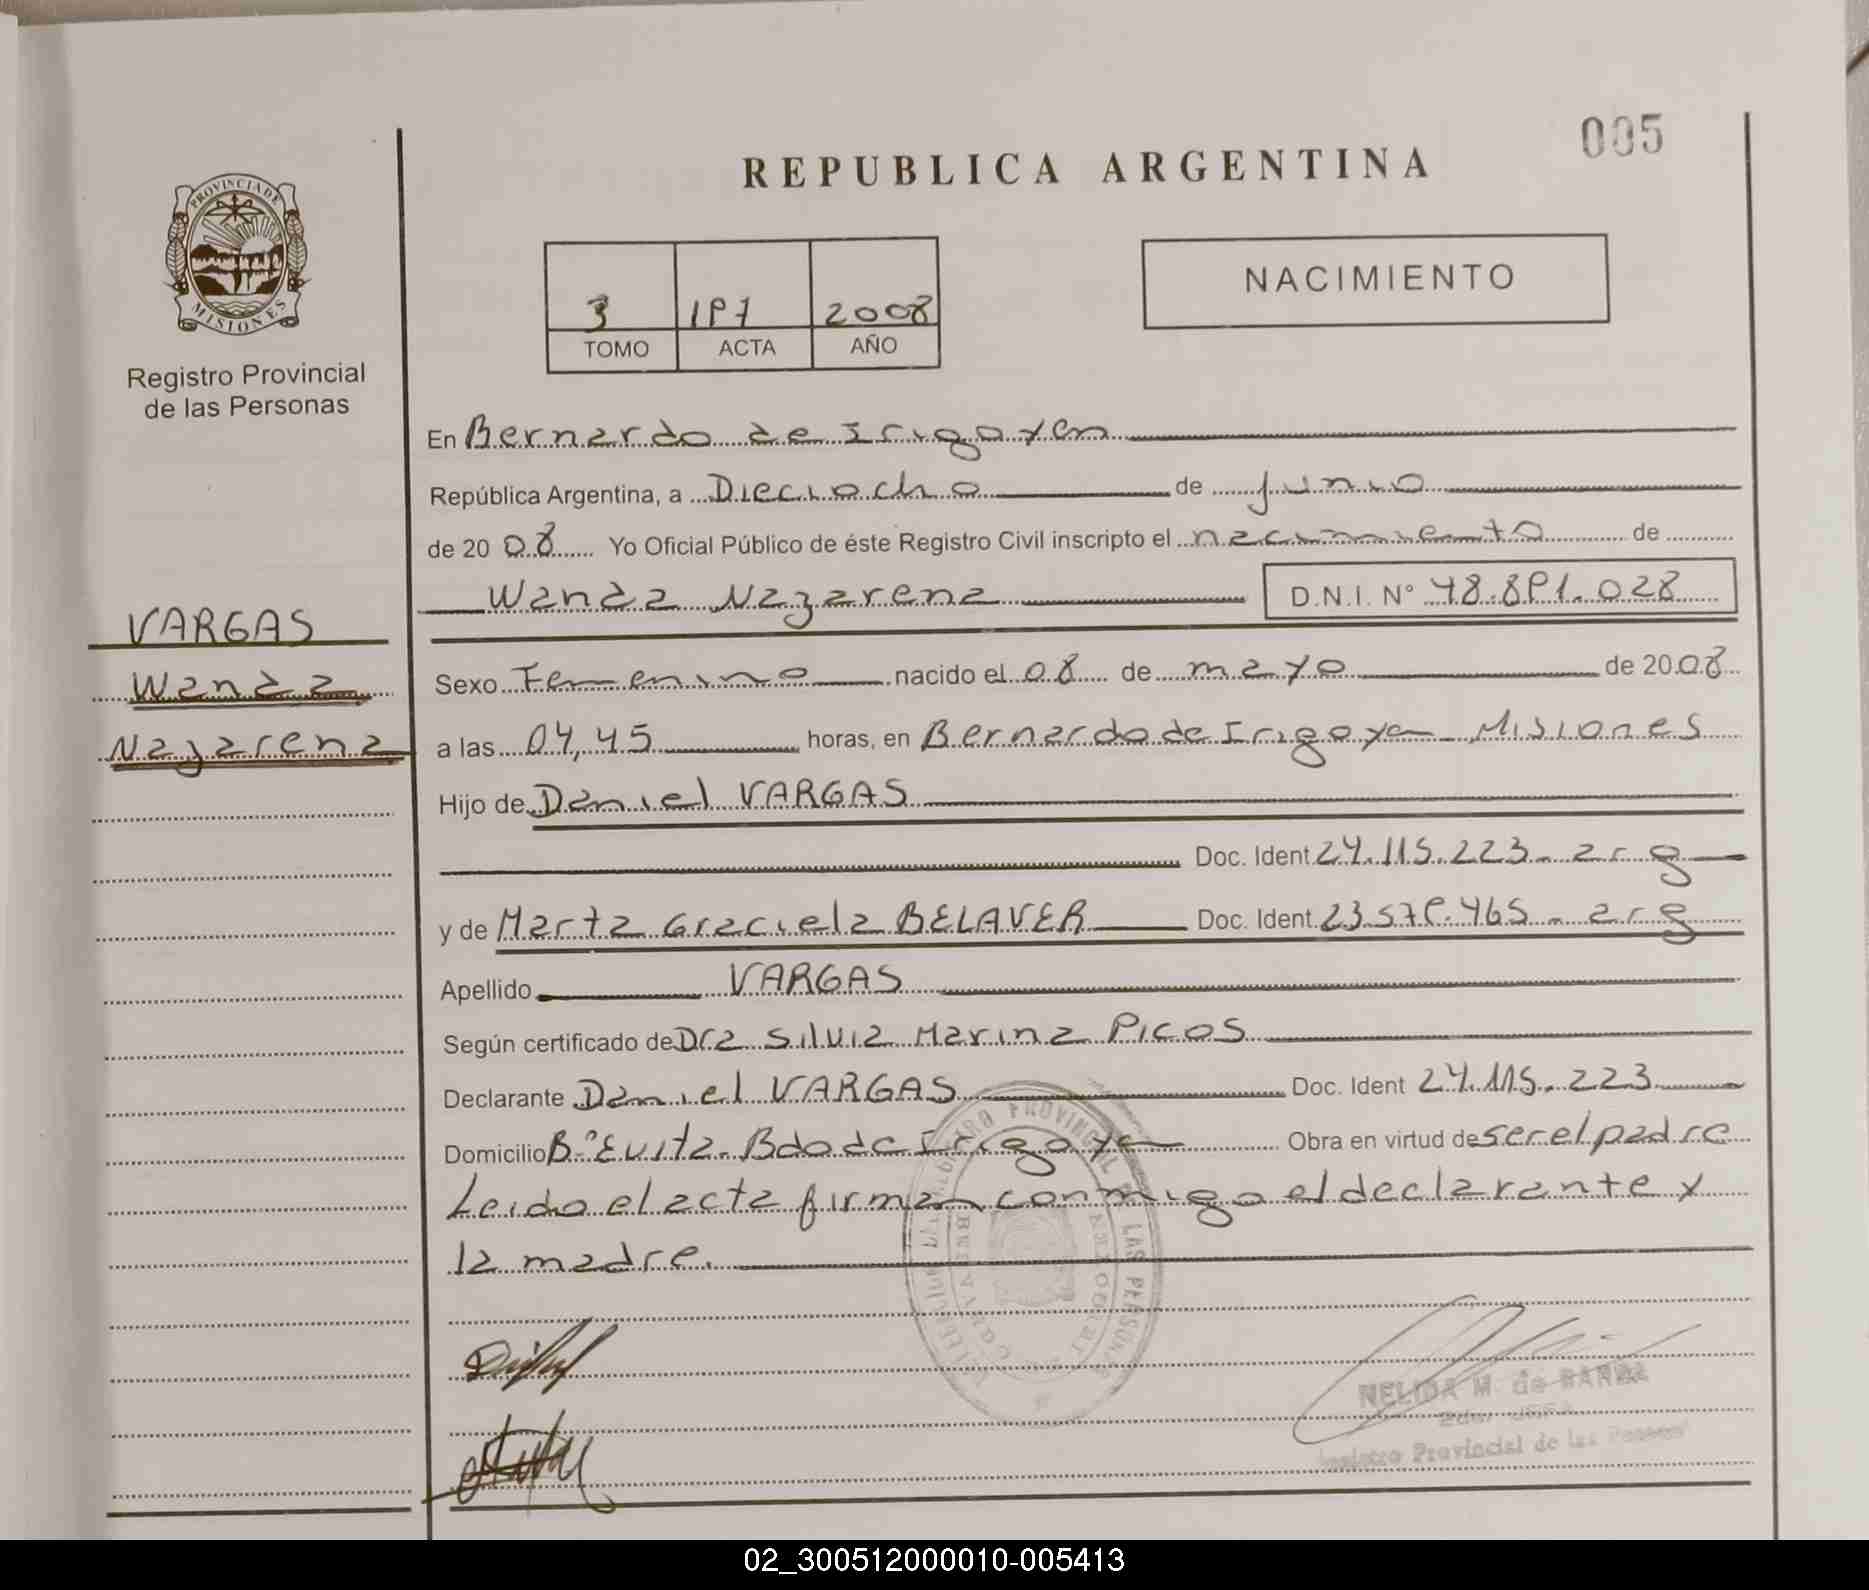 005
REPUBLICA ARGENTINA
PROVINCIA DE
MISIONES
Registro Provincial
de las Personas
3 197 2008
TOMO ACTA AÑO
NACIMIENTO
En Bernardo de Irigoyen
República Argentina, a Dieciocho de junio
de 2008 Yo Oficial Público de éste Registro Civil inscripto el nacimiento de
Wanda Nazarena D.N.I. Nº 48.891.028
VARGAS
Wanda
Nazarena
Sexo Femenino nacido el 08 de mayo de 2008
a las 04,45 horas, en Bernardo de Irigoyen Misiones
Hijo de Daniel VARGAS
Doc. Ident 24.115.223- arg
y de Marta Graciela BELAVER Doc. Ident. 23.579.465 - arg
Apellido VARGAS
Según certificado de Dra Silvia Marina PICOS
Declarante Daniel VARGAS Doc. Ident 24.115.223
Domicilio Bº Evita. Bdo de Irigoyen Obra en virtud de ser el padre
Leido el acta firman conmigo el declarante y
la madre.
NELIDA M. de
Registro Provincial de las
02_300512000010-005413